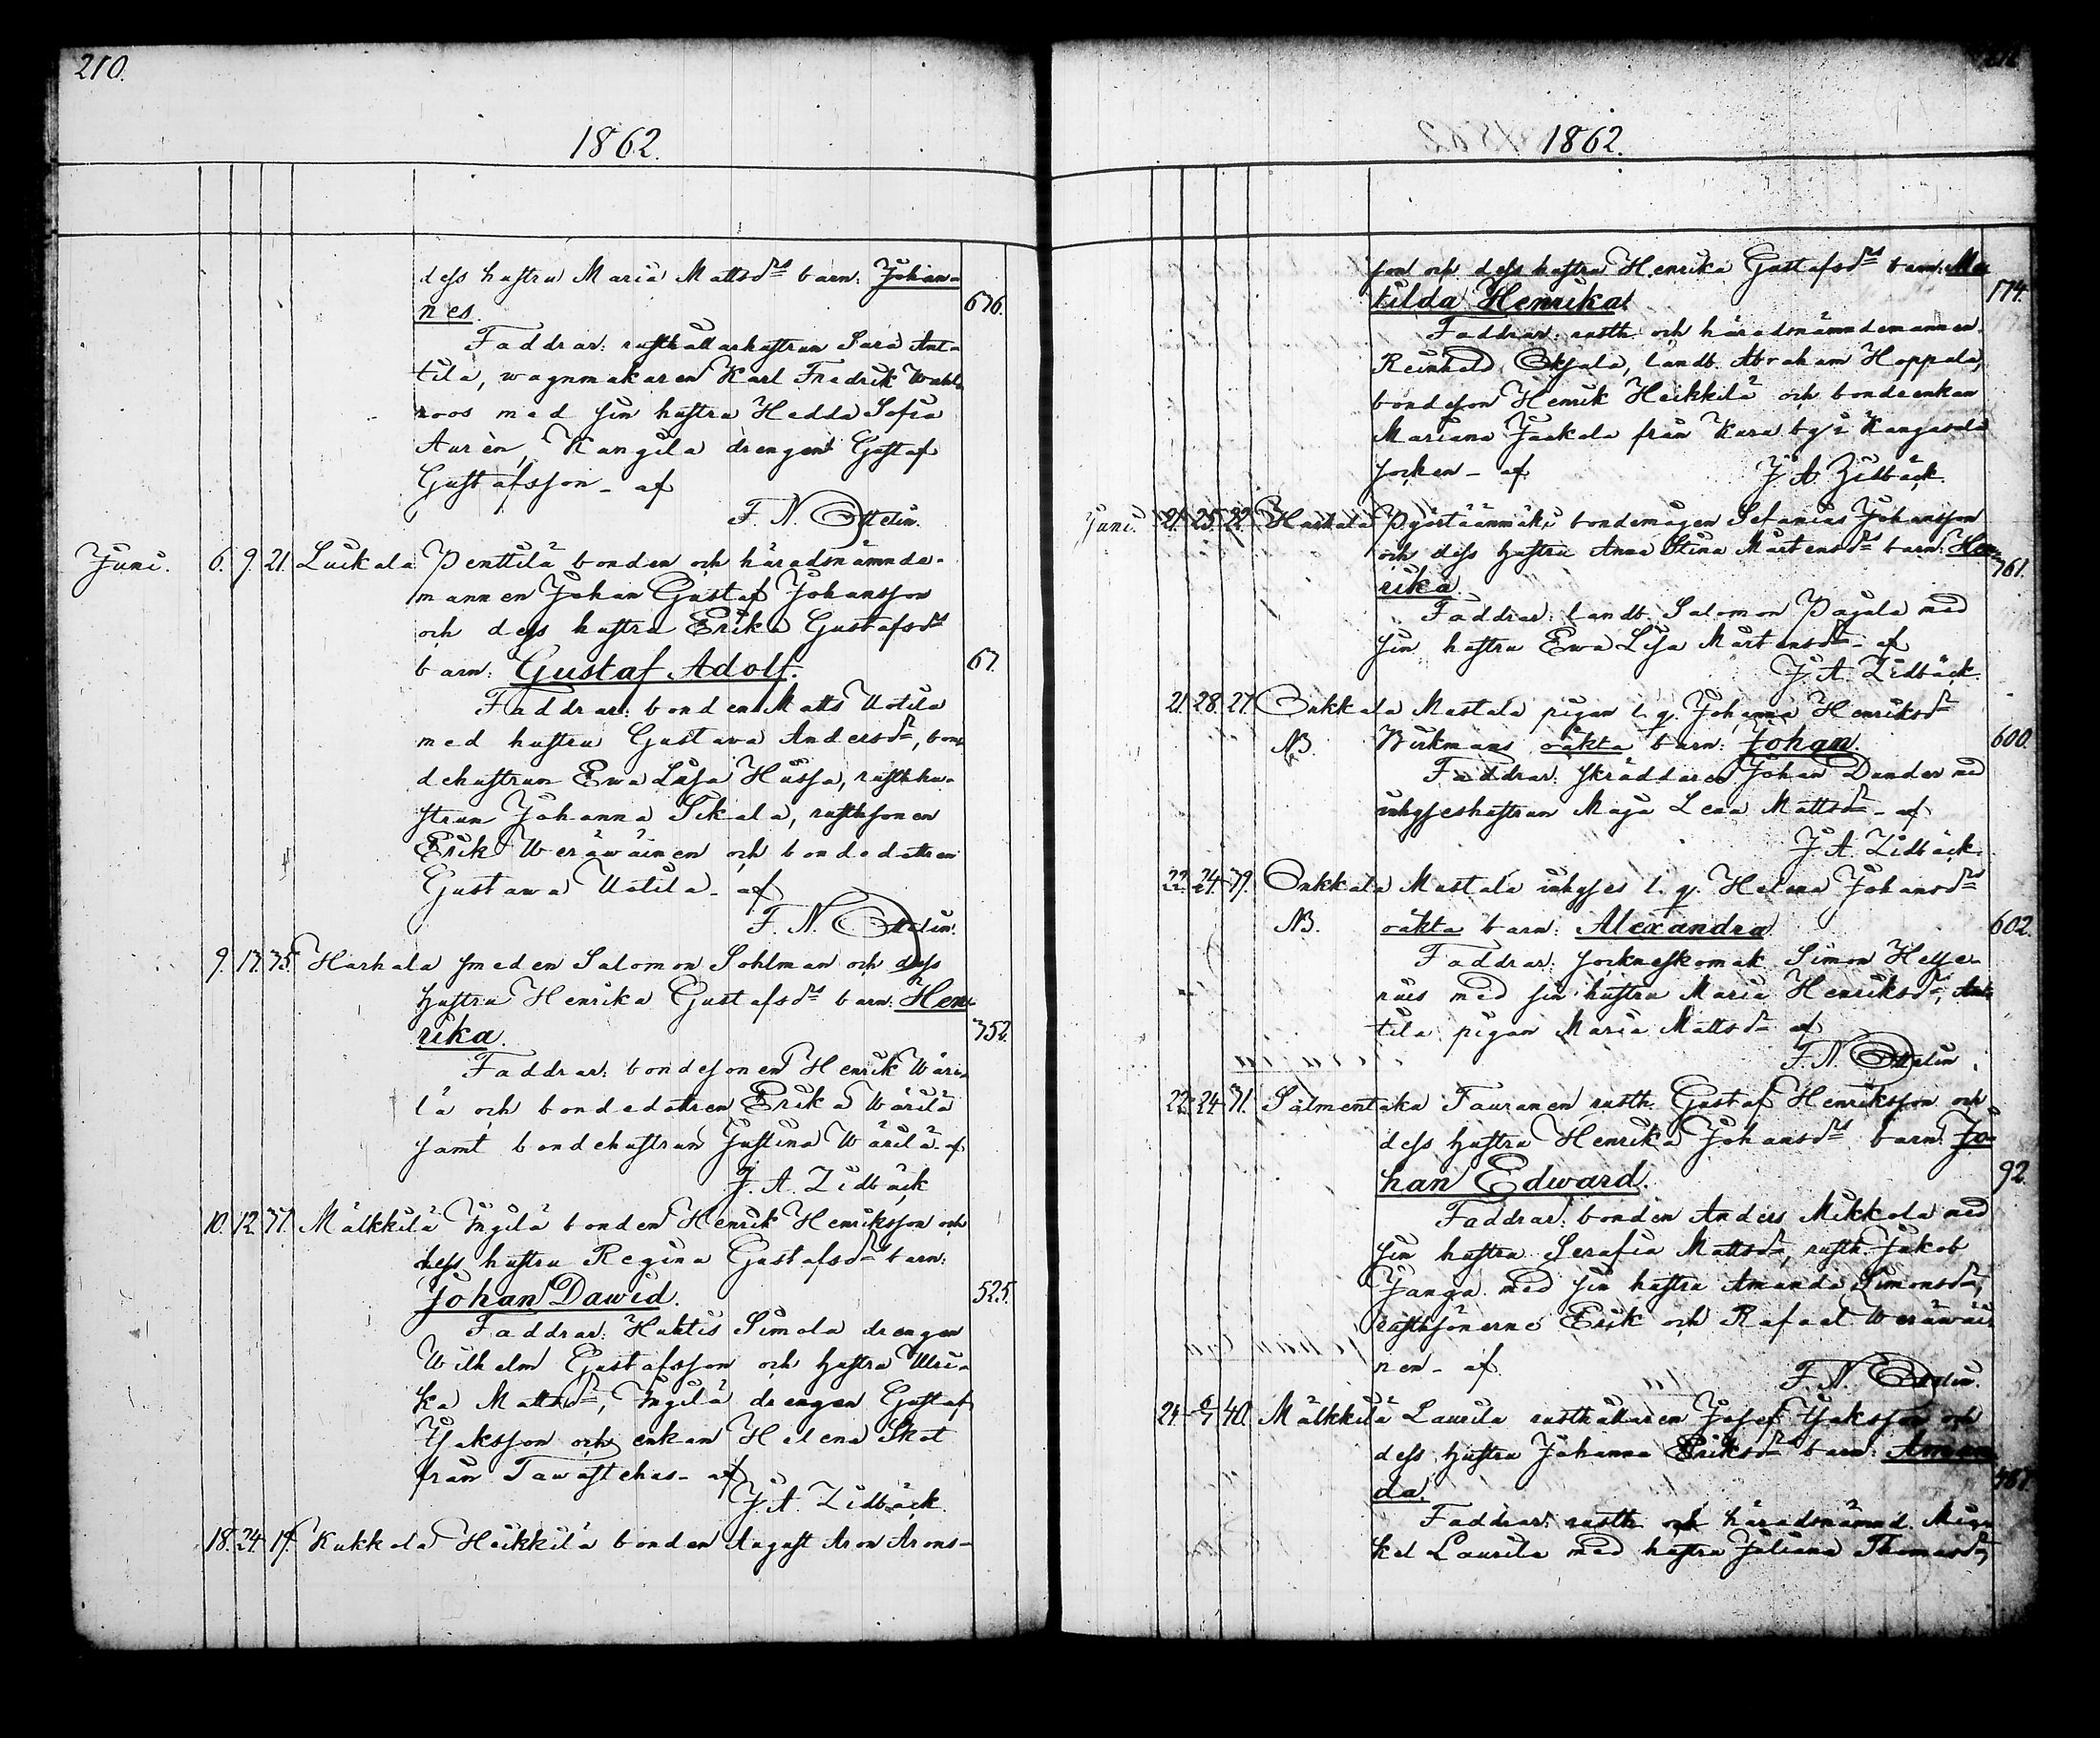 210.
1862.
dess hustru Maria Mattsdr barn: Johan-
nes.
676.
Faddrar: rusthållarhustrun Sara Ant-
tila, wagnmakaren Karl Fredrik Wahl-
roos med sin hustru Hedda Sofia
Aurèn, Kangila drengen Gustaf
Gustafsson - af
F. N. Ottelin.
Juni. 6. 9. 21. Luikala Penttilä bonden och häradsnämnde-
mannen Johan Gustaf Johansson
och dess hustru Erika Gustafsdr
barn: Gustaf Adolf.
67.
Faddrar: bonden Matts Uotila
med hustru Gustava Andersdr, bon-
dehustrun Ewa Lisa Hussa, rusthhu-
strun Johanna Sikala, rusthsonen
Erik Weräwäinen och bondedottren
Gustawa Uotila - af
F. N. Ottelin.
9. 17. 35. Harhala smeden Salomon Sohlman och dess
hustru Henrika Gustafsdr barn: Hen-
rika.
352.
Faddrar: bondesonen Henrik Wäri-
lä och bondedottren Erika Wärilä
samt bondehustrun Justina Wärilä - af
J. A. Zidbäck
10. 12. 31. Mälkkilä Yngilä bonden Henrik Henriksson och
dess hustru Regina Gustafsdr barn:
Johan Dawid.
525.
Faddrar: Huktis Simola drengen
Wilhelm Gustafsson och hustru Ulri-
ka Mattsdr, Yngilä drengen Gustaf
Isaksson och enkan Helena Skot
från Tawastehus - af
J. A. Zidbäck.
18. 24. 19. Kukkola Heikkilä bonden August Aron Arons-
1862.
son och dess hustru Henrika Gustafsdr barn: Ma-
tilda Henrika.
174.
Faddrar: rusth. och häradsnämndemannen
Reinhold Skyala, landb. Abraham Hoppala,
bondeson Henrik Heikkilä och bondeenkan
Mariana Jaakola från Kara by i Kangasala
socken - af J. A. Zidbäck.
Juni. 21. 25. 22. Harhala Pyöstiänmäki bondemågen Sefanias Johansson
och dess hustru Anna Stina Mårtensdr barn: Hen-
rika.
361.
Faddrar: landb. Salomon Pajula med
sin hustru Ewa Lisa Mårtensdr - af
J. A. Zidbäck.
21. 28. 27. Onkkala Mastala pigan l. q. Johanna Henriksdr
NB. Wirkmans oäkta barn: Johan.
600.
Faddrar: skräddaren Johan Dunder med
inhyseshustrun Maja Lena Mattsdr - af
J. A. Zidbäck.
22. 24. 39. Onkkala Mastala inhyses l. q. Helena Johansdrs
NB. oäkta barn: Alexandra
602.
Faddrar: sockneskomak. Simon Helse-
nius med sin hustru Maria Henriksdr, Ant-
tila pigan Maria Mattsdr af
F. N. Ottelin
22. 24. 31. Salmentaka Tauranen rusth. Gustaf Henriksson och
dess hustru Henrika Johansdrs barn: Jo-
han Edward.
92.
Faddrar: bonden Anders Mikkola med
sin hustru Serafia Mattsdr, rusth. Jakob
Janga med sin hustru Amanda Simonsdr,
rusthsönerne Erik och Rafael Weräwäi-
nen - af
F. N. Ottelin.
40. Mälkkilä Laurila rusthållaren Josef Isaksson och
dess hustru Johanna Eriksdr barn: Aman-
da.
Faddrar: rusth. och häradsnämnd. Mi-
kel Laurila med hustru Juliana Thomasdr,